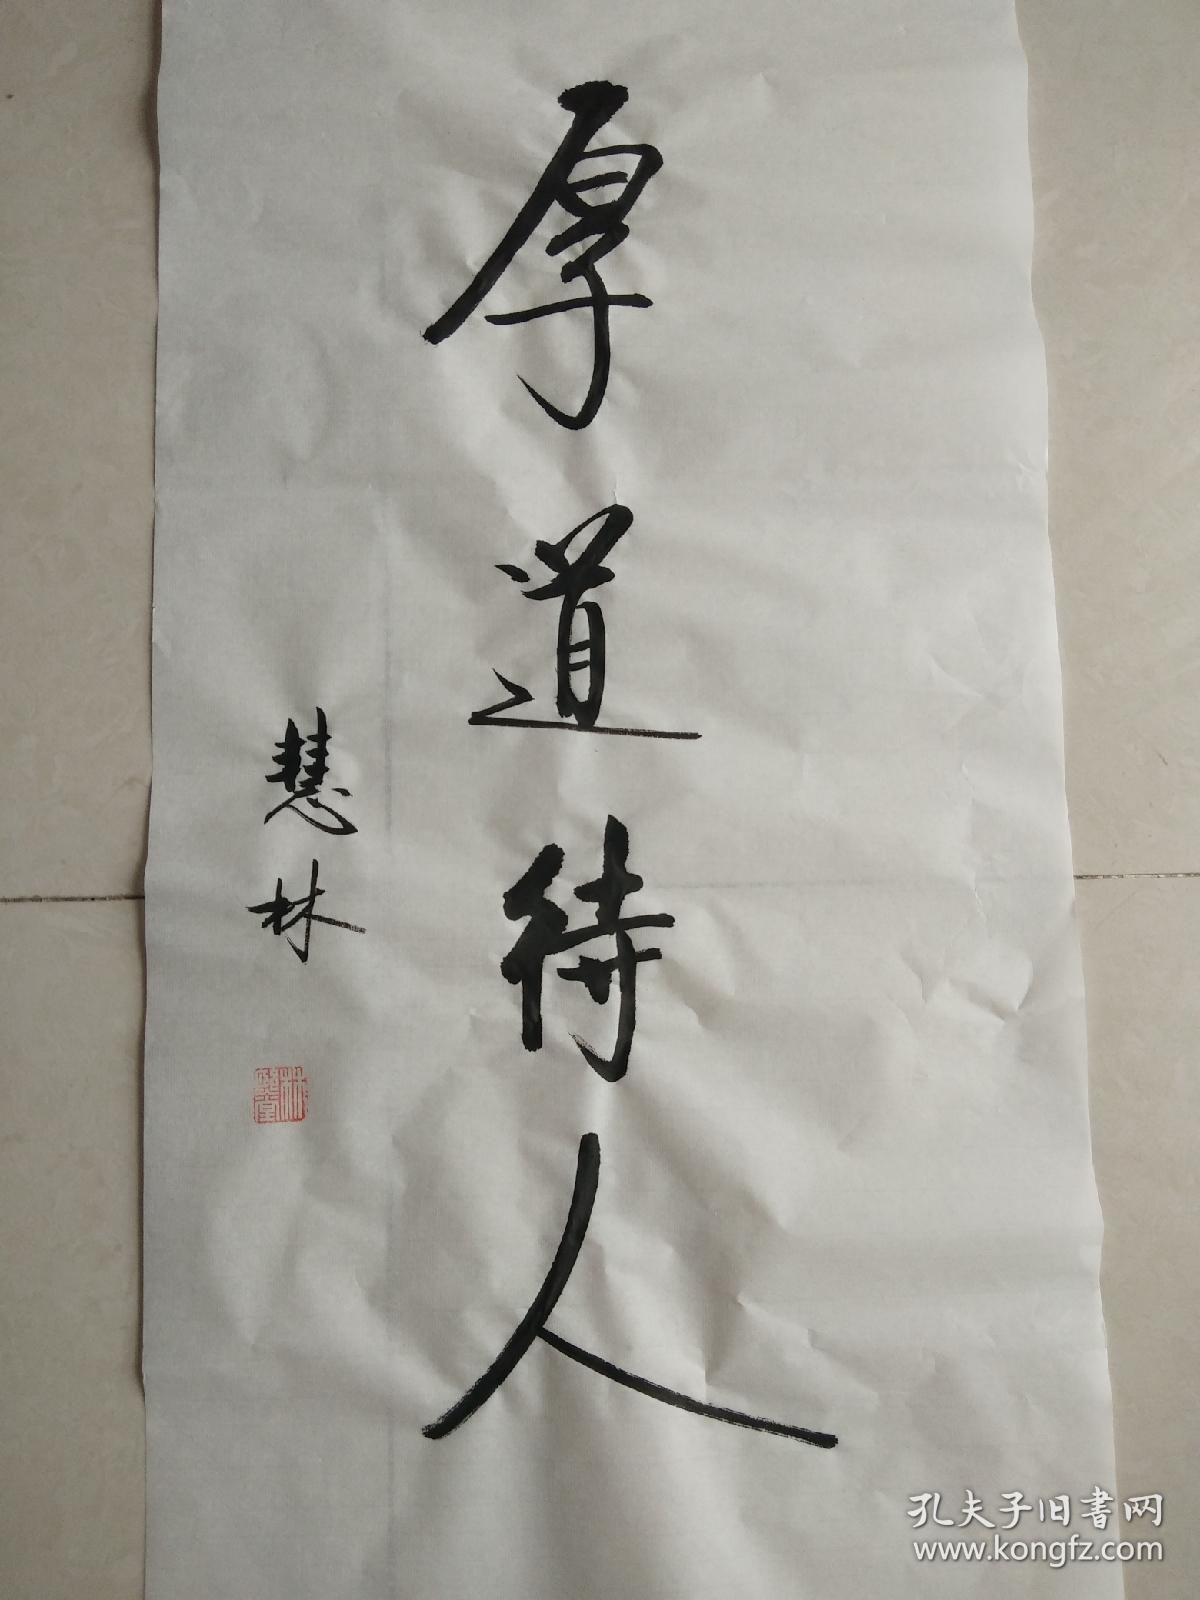 厚道待人
慧林
孔夫子旧書网
www.kongfz.com